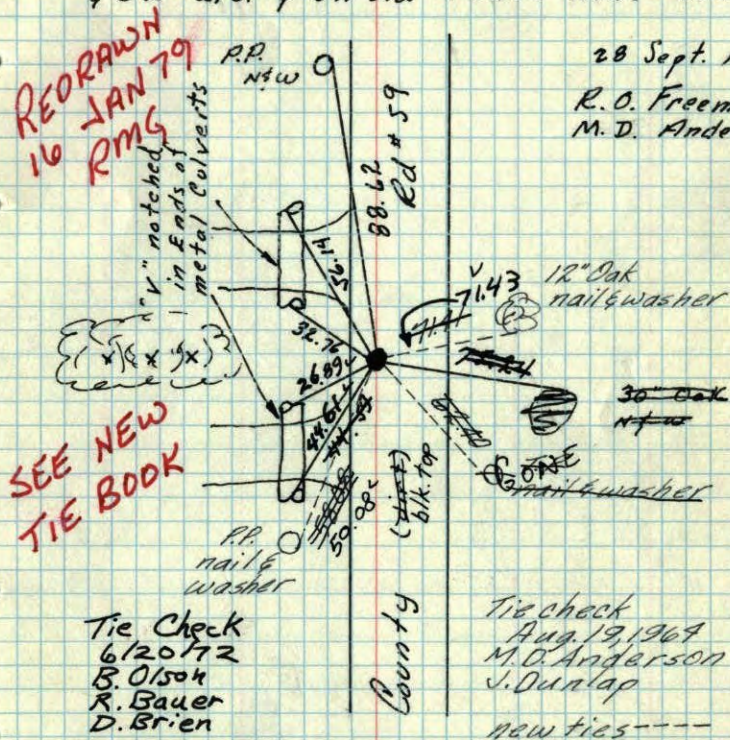 REDRAWN
16 JAN 79
RMG
P.P.
N&W
28 Sept.
R. O. Freem
M. D. Ande
"V" notched
in Ends of
metal Culverts
88.62
Rd # 59
56.14
32.76
26.89
44.61
50.08
71.43
12" Oak
nail & washer
30" Oak
N & W
GONE
nail & washer
SEE NEW
TIE BOOK
P.P.
nail &
washer
County
(dirt)
blk. top
Tie Check
6/20/72
B. Olson
R. Bauer
D. Brien
Tie check
Aug. 19, 1964
M.D. Anderson
J. Dunlap
new ties ----